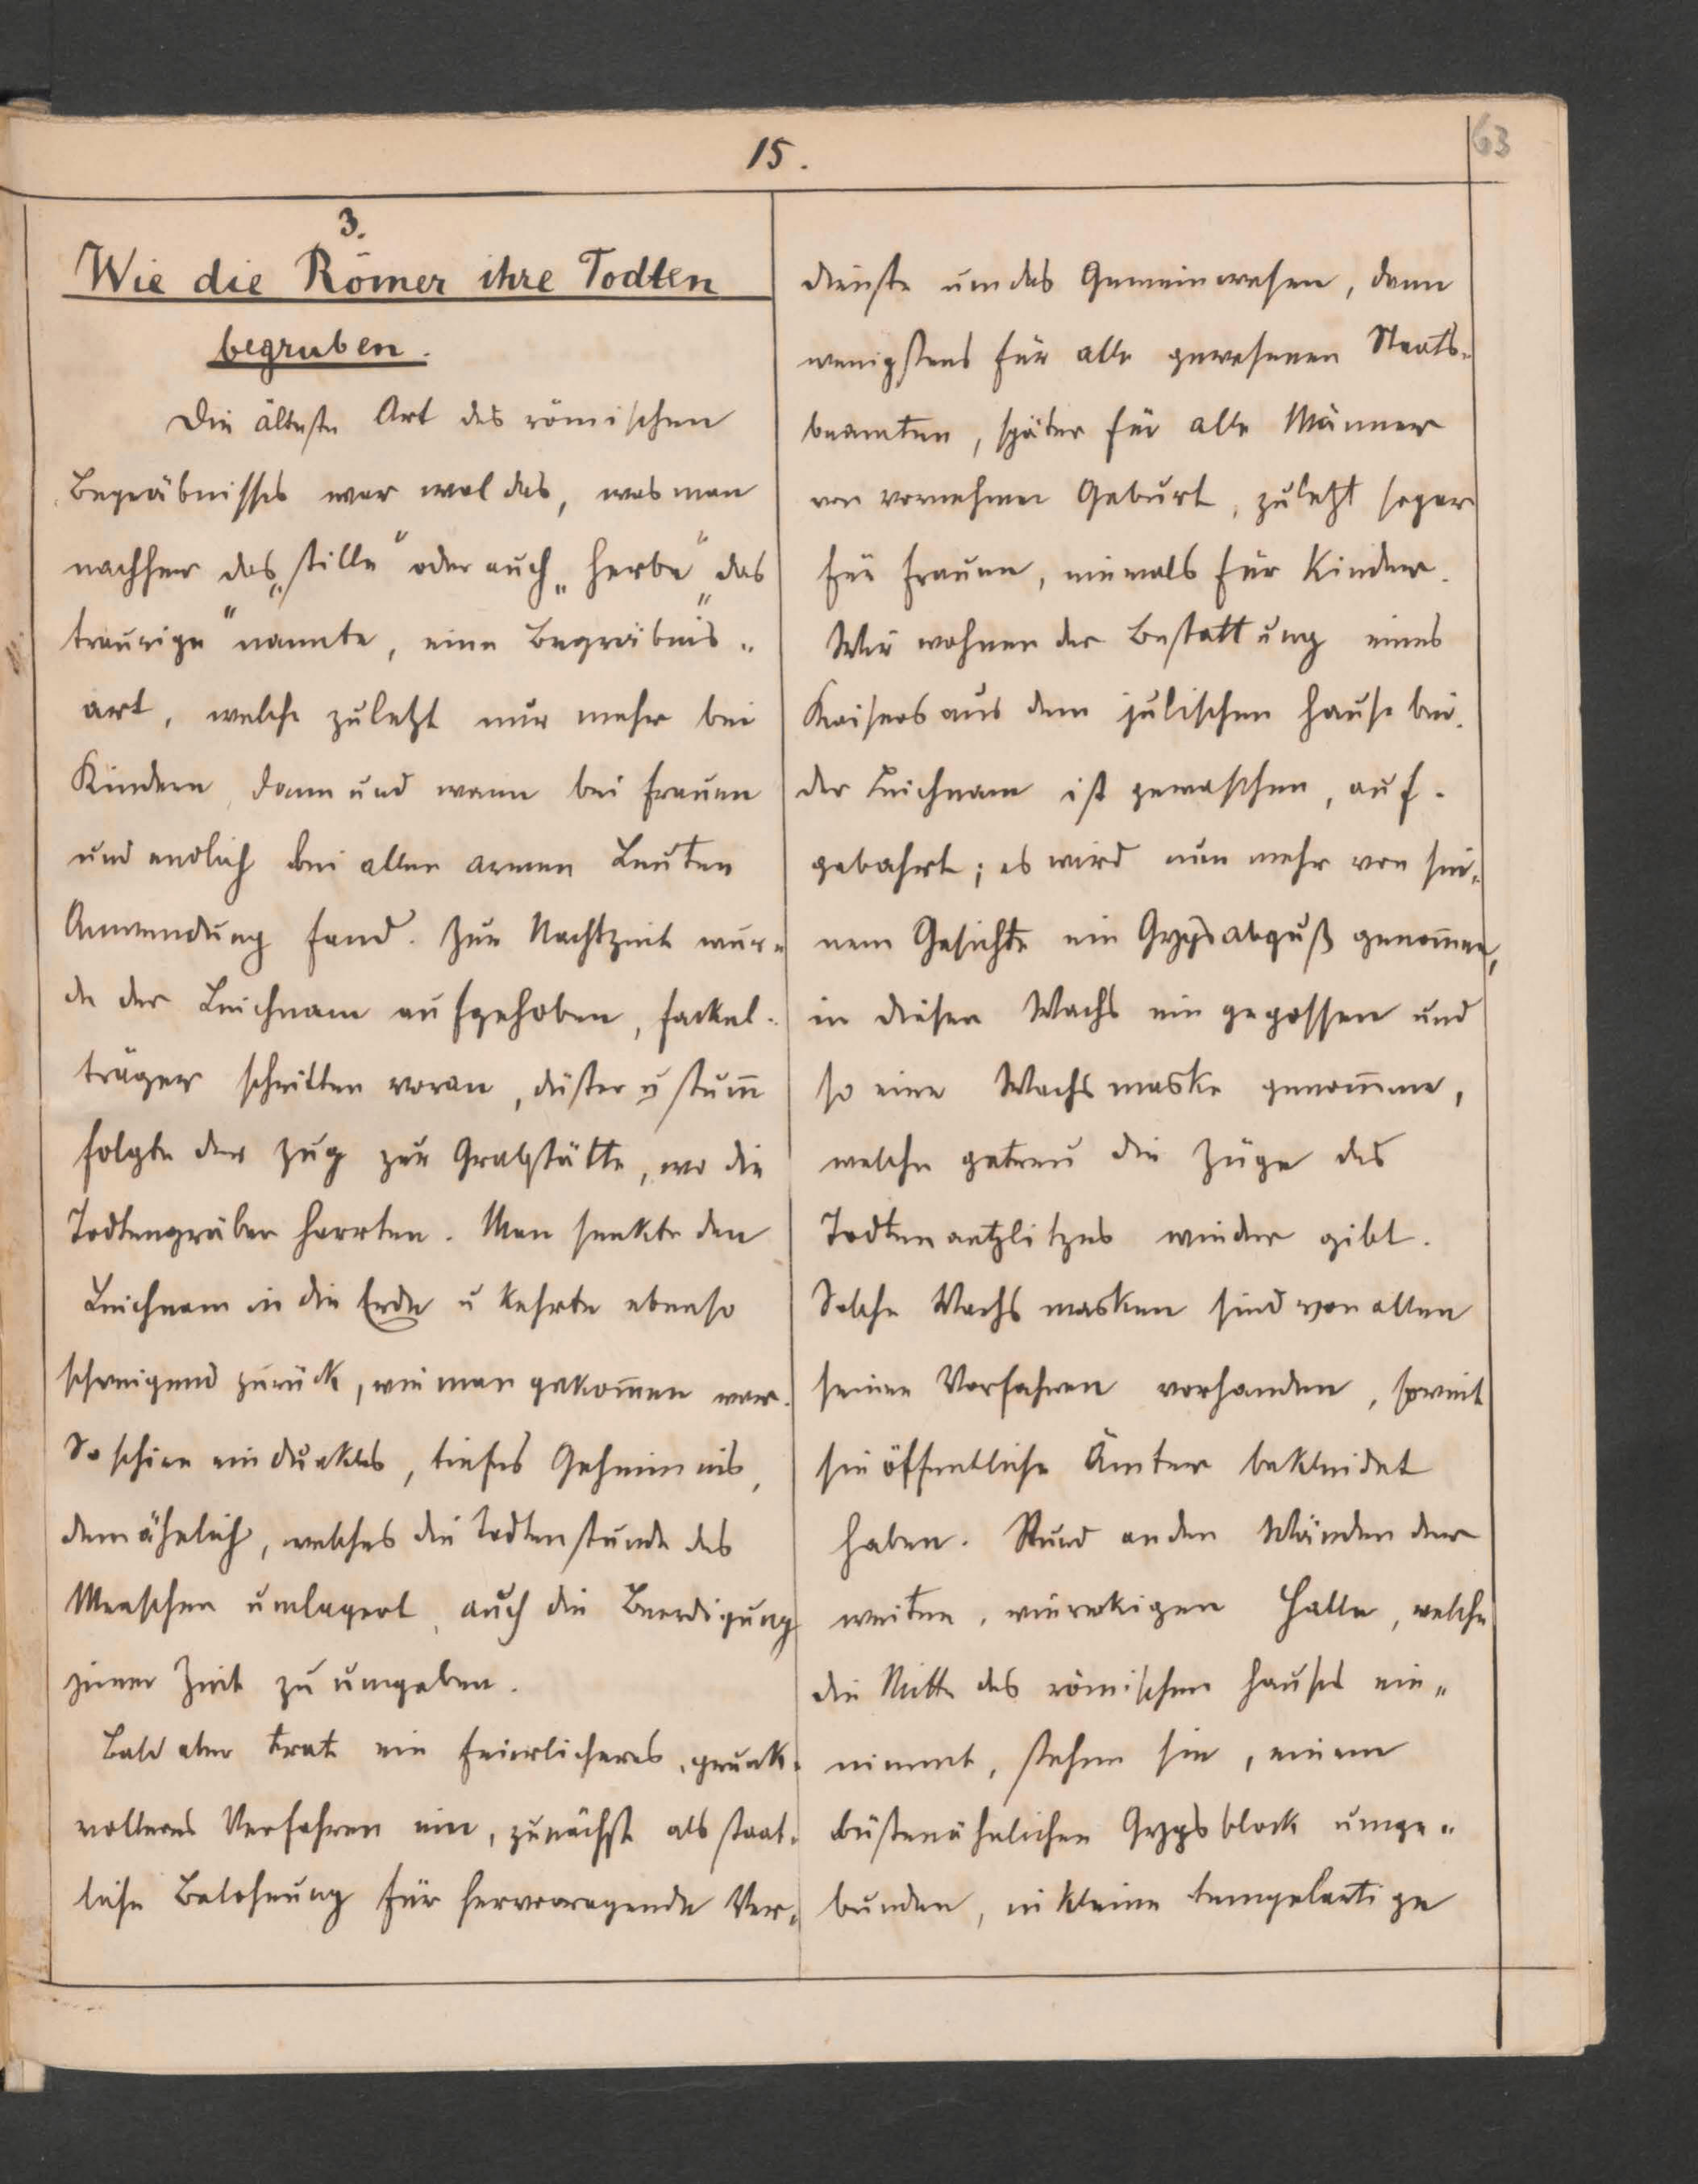 15.
63
3.
Wie die Römer ihre Todten
begruben.
Die älteste Art des römischen
Begräbnisses war wol das, was man
nachher das „stille“ oder auch „herbe“ das
„traurige“ nannte, eine Begräbnis„
art, welche zuletzt nur mehr bei
Kindern, dann und wann bei Frauen
und endlich bei allen armen Leuten
Anwendung fand. Zur Nachtzeit wur„
de der Leichnam aufgehoben, Fackel„
träger schritten voran, düster u stum̅
folgte der Zug zur Grabstätte, wo die
Todtengräber harrten. Man senkte den
Leichnam in die Erde u kehrte ebenso
schweigend zurück, wie man gekom̅en war.
So schien ein dunkles, tiefes Geheimnis,
dem ähnlich, welches die Todtenstunde des
Menschen umlagert, auch die Beerdigung
jener Zeit zu umgeben.
Bald aber trat ein feierlicheres, prunk„
volleres Verfahren ein, zunächst als staat„
liche Belohnung für hervorragende Ver„
dienste um das Gemeinwesen, dann
wenigstens für alle gewesenen Staats„
beamten, später für alle Männer
von vornehmer Geburt, zuletzt sogar
für Frauen, niemals für Kinder.
Wir wohnen der Bestattung eines
Kaisers aus dem julischen Hause bei.
der Leichnam ist gewaschen, auf„
gebahrt; es wird nun mehr von sei„
nem Gesichte ein Gypsabguß genom̅en,
in diesen Wachs ein gegossen und
so eine Wachsmaske genom̅en,
welche getreu die Züge des
Todtenantzlitzes wieder gibt.
Solche Wachsmasken sind von allen
seinen Vorfahren vorhanden, soweit
sie öffentliche Ämter bekleidet
haben. Rund an den Wänden der
weiten, viereckigen Halle, welche
die Mitte des römischen Hauses ein„
nimmt, stehen sie, einem
büstenähnlichen Gypsblock umge„
bunden, in kleine tempelartige